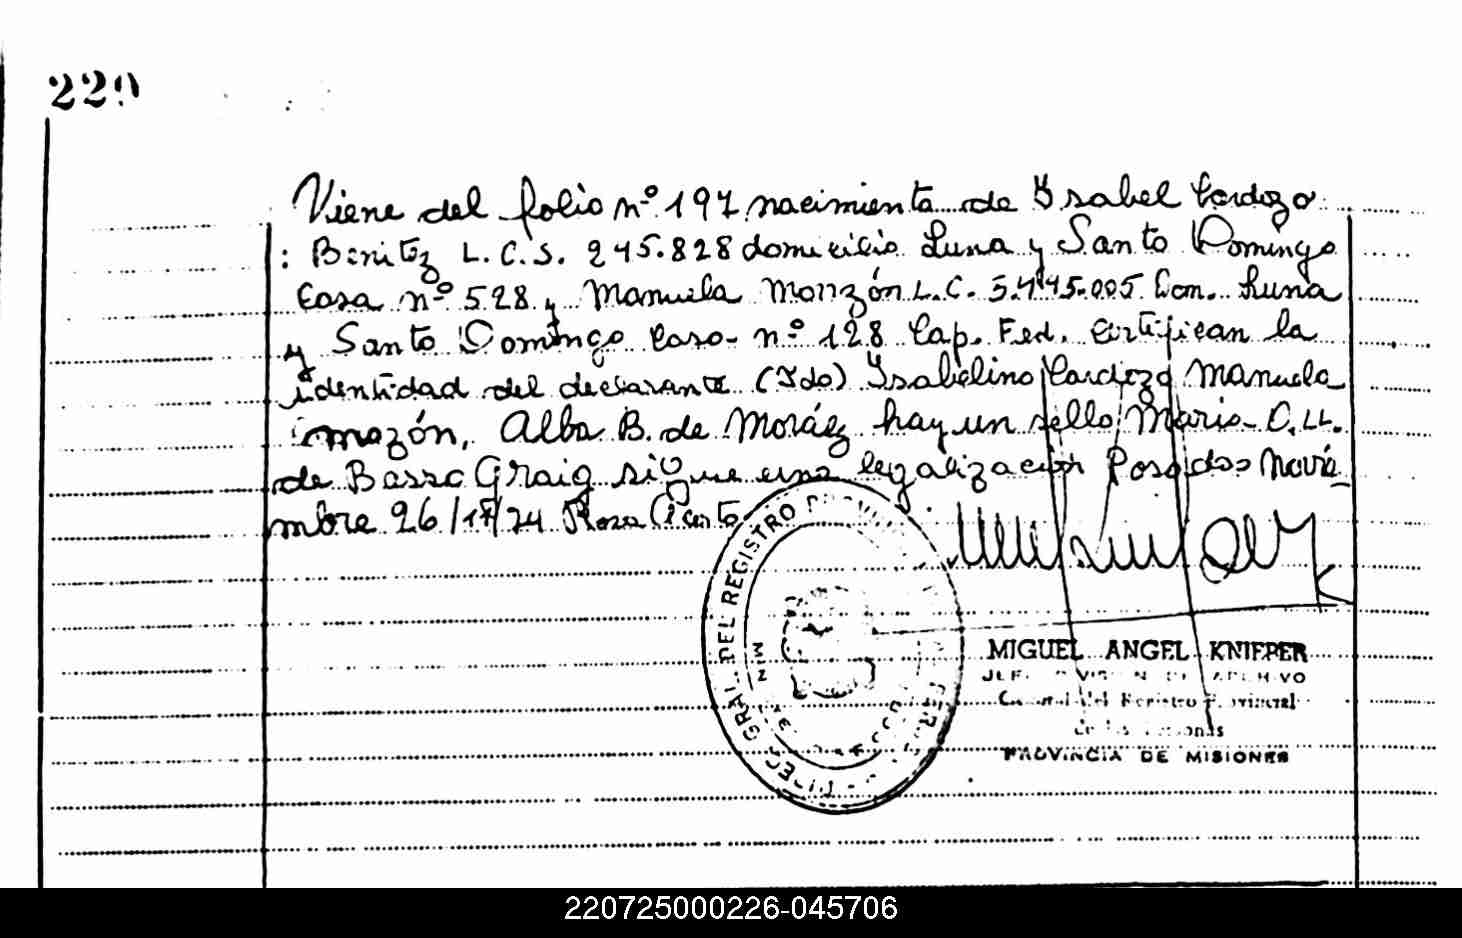 229
Viene del folio nº 197 nacimiento de Ysabel Cardozo
: Benitez L.C.S. 245.828 domicilio Luna y Santo Domingo
Casa nº 528 y Manuela Monzón L.C. 5.445.005 Dom. Luna
y Santo Domingo Casa nº 128 Cap. Fed. Certifican la
identidad del declarante (Fdo) Isabelino Cardozo Manuela
mozón, Alba B. de Moráez hay un sello Maria O. LL.
de Basso Graig sigue una legalización Posadas Novie_
mbre 26/1974 Rosa
DIREC. GRAL. DEL REGISTRO PROVINCIAL
MIGUEL ANGEL KNIEPER
JEFE DIVISION DE ARCHIVO
General del Registro Provincial
de las Personas
PROVINCIA DE MISIONES
220725000226-045706